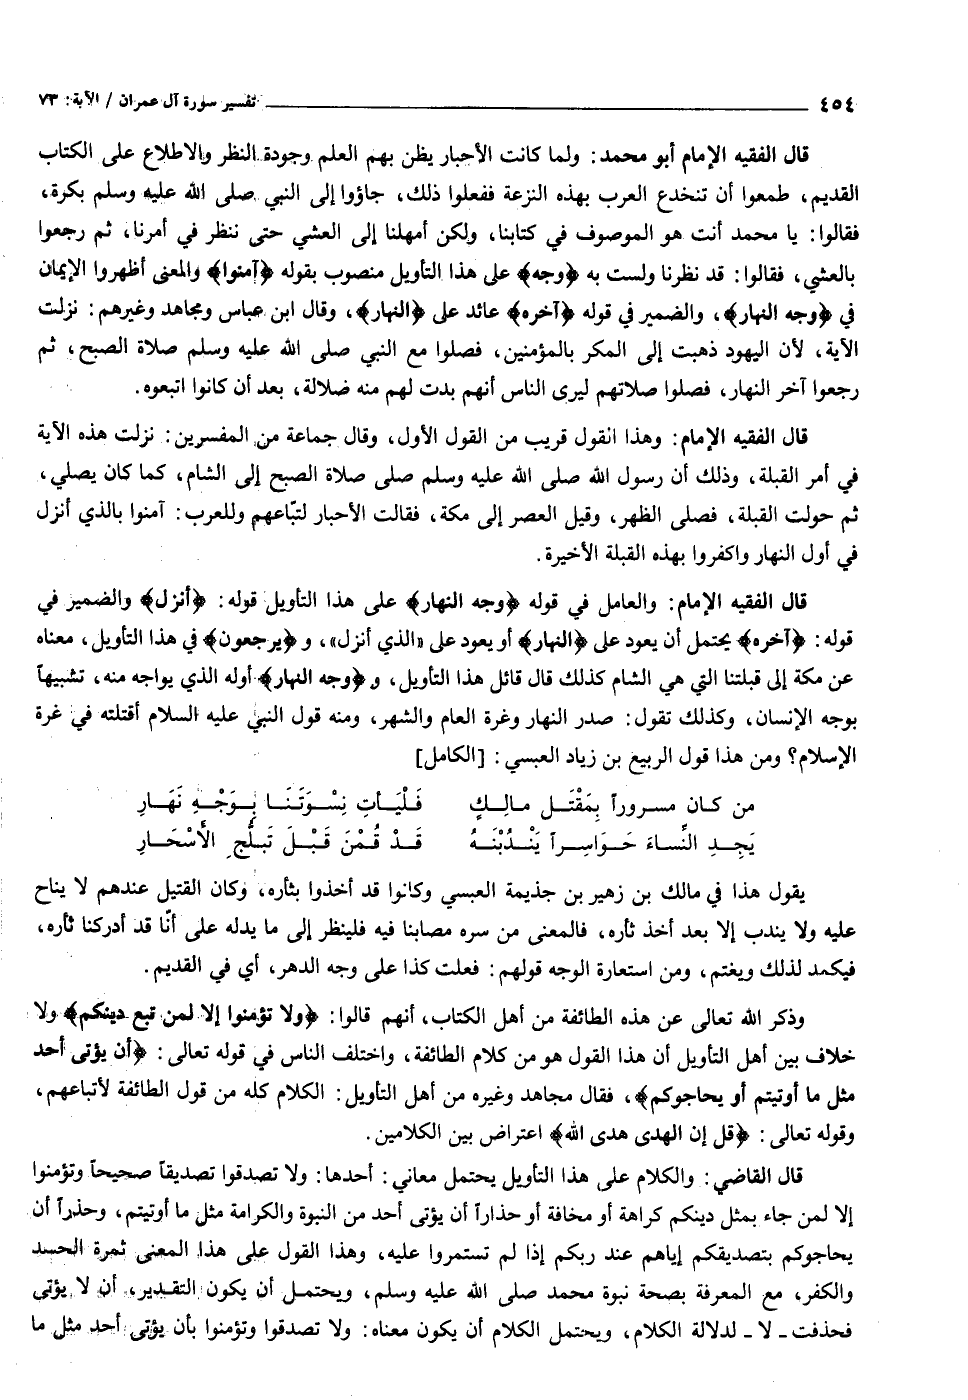 ٤٥٤ تفسير سورة آل عمران / الآية: ٧٣
قال الفقيه الإمام أبو محمد: ولما كانت الأحبار يظن بهم العلم وجودة النظر والاطلاع على الكتاب
القديم، طمعوا أن تنخدع العرب بهذه النزعة ففعلوا ذلك، جاؤوا إلى النبي صلى الله عليه وسلم بكرة،
فقالوا: يا محمد أنت هو الموصوف في كتابنا، ولكن أمهلنا إلى العشي حتى ننظر في أمرنا، ثم رجعوا
بالعشي، فقالوا: قد نظرنا ولست به ﴿وجه﴾ على هذا التأويل منصوب بقوله ﴿آمنوا﴾ والمعنى أظهروا الإيمان
في ﴿وجه النهار﴾، والضمير في قوله ﴿آخره﴾ عائد على ﴿النهار﴾، وقال ابن عباس ومجاهد وغيرهم: نزلت
الآية، لأن اليهود ذهبت إلى المكر بالمؤمنين، فصلوا مع النبي صلى الله عليه وسلم صلاة الصبح، ثم
رجعوا آخر النهار، فصلوا صلاتهم ليرى الناس أنهم بدت لهم منه ضلالة، بعد أن كانوا اتبعوه.
قال الفقيه الإمام: وهذا القول قريب من القول الأول، وقال جماعة من المفسرين: نزلت هذه الآية
في أمر القبلة، وذلك أن رسول الله صلى الله عليه وسلم صلى صلاة الصبح إلى الشام، كما كان يصلي،
ثم حولت القبلة، فصلى الظهر، وقيل العصر إلى مكة، فقالت الأحبار لتبّاعهم وللعرب: آمنوا بالذي أنزل
في أول النهار واكفروا بهذه القبلة الأخيرة.
قال الفقيه الإمام: والعامل في قوله ﴿وجه النهار﴾ على هذا التأويل قوله: ﴿أنزل﴾ والضمير في
قوله: ﴿آخره﴾ يحتمل أن يعود على ﴿النهار﴾ أو يعود على «الذي أنزل»، و ﴿يرجعون﴾ في هذا التأويل، معناه
عن مكة إلى قبلتنا التي هي الشام كذلك قال قائل هذا التأويل، و﴿وجه النهار﴾ أوله الذي يواجه منه، تشبيهاً
بوجه الإنسان، وكذلك تقول: صدر النهار وغرة العام والشهر، ومنه قول النبي عليه السلام أقتلته في غرة
الإسلام؟ ومن هذا قول الربيع بن زياد العبسي: [الكامل]
من كـان مسـروراً بِمَقْتَـل مـالِـكٍ فَلْيَـأتِ نِسْـوَتَنَـا بِـوَجْـهِ نَهَـارِ
يَجِـدِ النِّسـاءَ حَـوَاسِـراً يَنْـدُبْنَـهُ قَـدْ قُمْنَ قَبْـلَ تَبـلُّجِ الأَسْحَـارِ
يقول هذا في مالك بن زهير بن جذيمة العبسي وكانوا قد أخذوا بثأره، وكان القتيل عندهم لا يناح
عليه ولا يندب إلا بعد أخذ ثأره، فالمعنى من سره مصابنا فيه فلينظر إلى ما يدله على أنّا قد أدركنا ثأره،
فيكمد لذلك ويغتم، ومن استعارة الوجه قولهم: فعلت كذا على وجه الدهر، أي في القديم.
وذكر الله تعالى عن هذه الطائفة من أهل الكتاب، أنهم قالوا: ﴿ولا تؤمنوا إلا لمن تبع دينكم﴾ ولا
خلاف بين أهل التأويل أن هذا القول هو من كلام الطائفة، واختلف الناس في قوله تعالى: ﴿أن يؤتى أحد
مثل ما أوتيتم أو يحاجوكم﴾، فقال مجاهد وغيره من أهل التأويل: الكلام كله من قول الطائفة لأتباعهم،
وقوله تعالى: ﴿قل إن الهدى هدى الله﴾ اعتراض بين الكلامين.
قال القاضي: والكلام على هذا التأويل يحتمل معاني: أحدها: ولا تصدقوا تصديقاً صحيحاً وتؤمنوا
إلا لمن جاء بمثل دينكم كراهة أو مخافة أو حذاراً أن يؤتى أحد من النبوة والكرامة مثل ما أوتيتم، وحذراً أن
يحاجوكم بتصديقكم إياهم عند ربكم إذا لم تستمروا عليه، وهذا القول على هذا المعنى ثمرة الحسد
والكفر، مع المعرفة بصحة نبوة محمد صلى الله عليه وسلم، ويحتمـل أن يكون التقـدير، أن لا يؤتى
فحذفت ـ لا ـ لدلالة الكلام، ويحتمل الكلام أن يكون معناه: ولا تصدقوا وتؤمنوا بأن يؤتى أحد مثل ما